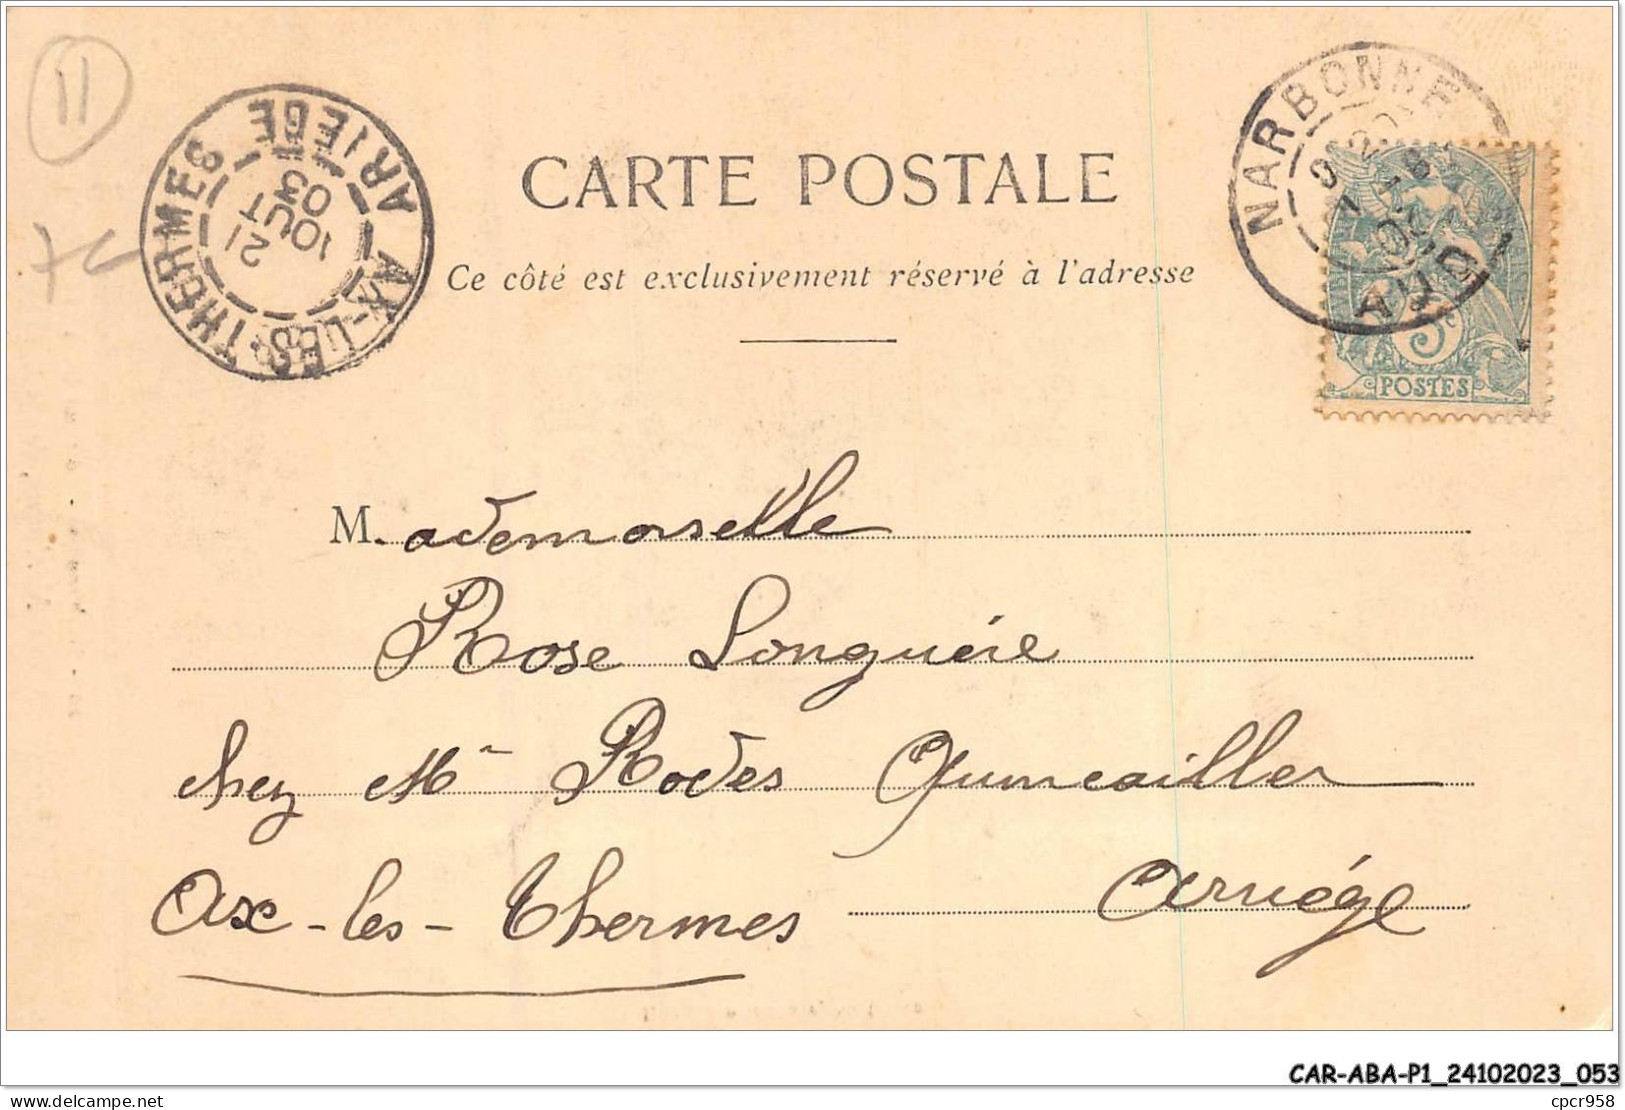 11
AX-LES-THERMES ARIEGE
21
AOUT
03
NARBONNE
AUDE
CARTE POSTALE
Ce côté est exclusivement réservé à l'adresse
5c
POSTES
M.ademoiselle
Rose Longuère
chez Mr Rodes Quincailler
Ax-les-Thermes Ariége
CAR-ABA-P1_24102023_053
cpcr958